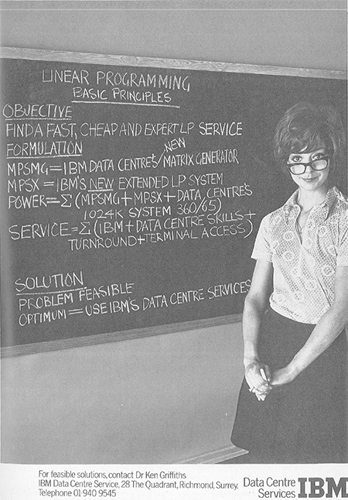 LINEAR PROGRAMMING
BASIC PRINCIPLES
OBJECTIVE
FIND A FAST, CHEAP AND EXPERT LP SERVICE
FORMULATION
NEW
MPSMG = IBM DATA CENTRE'S/MATRIX GENERATOR
MPSX = IBM'S NEW EXTENDED LP SYSTEM
POWER = Σ (MPSMG + MPSX + DATA CENTRE'S
1024K SYSTEM 360/65)
SERVICE = Σ (IBM + DATA CENTRE SKILLS +
TURNROUND + TERMINAL ACCESS)
SOLUTION
PROBLEM FEASIBLE
OPTIMUM = USE IBM'S DATA CENTRE SERVICES
For feasible solutions, contact Dr Ken Griffiths
IBM Data Centre Service, 28 The Quadrant, Richmond, Surrey.
Telephone 01 940 9545
Data Centre
Services IBM